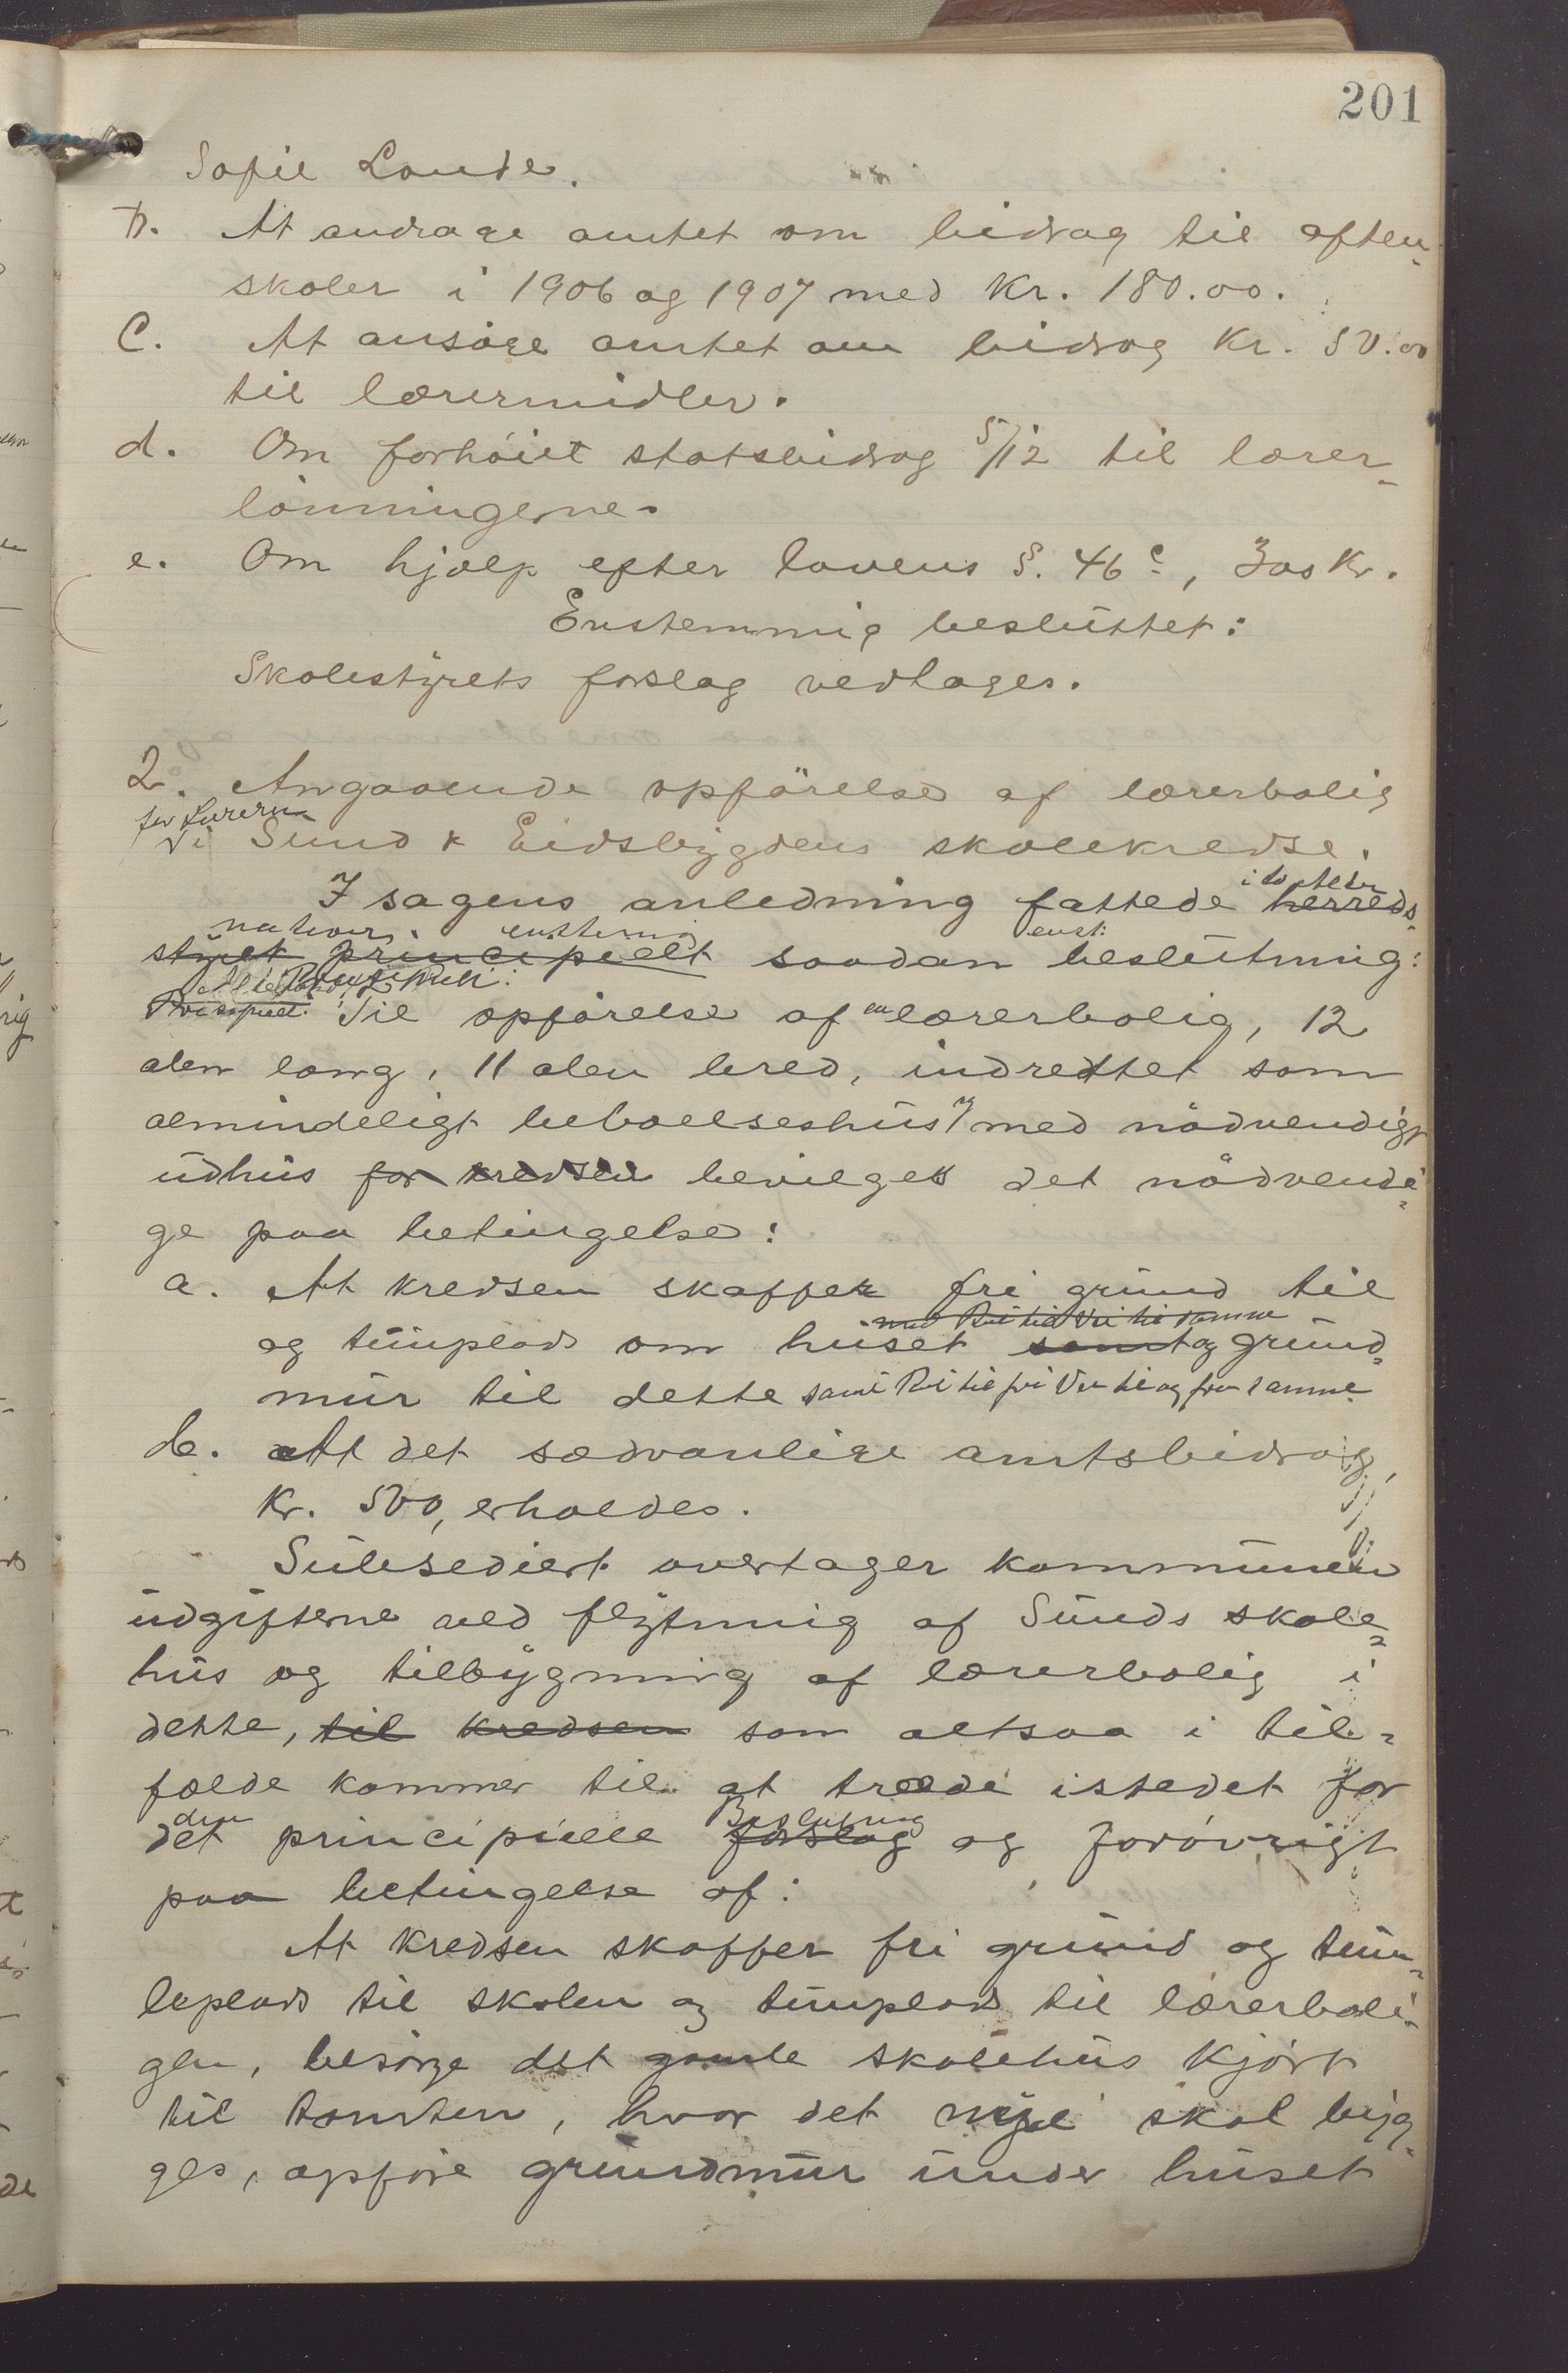 201
Sofie Lande.
b. At andrage amtet om bidrag til aften-
skoler i 1906 og 1907 med Kr. 180.00.
C. At ansøge amtet om bidrag Kr. 50.00
til lærermidler.
d. Om forhöiet statsbidrag 5/12 til lærer-
lönningerne.
e. Om hjælp efter lovens §. 46 c, 300 Kr.
Enstemmig besluttet:
Skolestyrets forslag vedtages.
2. Angaaende opförelse af lærerbolig
for Læreren
i Sund & Eidsbygdens skolekredse.
I sagens anledning fattede herreds-
styret principielt saadan beslutning:
enst:
Principielt: Til opförelse af en lærerbolig, 12
alen lang, 11 alen bred, indrettet som
almindeligt beboelseshus med nödvendigt
udhus for kredsen bevilges det nödvendi-
ge paa betingelse:
a. At kredsen skaffer fri grund til
og tunplads om huset samt og grund-
mur til dette samt
b. At det sædvanlige amtsbidrag,
Kr. 500, erholdes.
Subsediert overtager kommunen
udgifterne ved flytning af Sunds skole-
hus og tilbygning af lærerbolig i
dette, til kredsen som altsaa i til-
fælde kommer til at træde istedet for
den Beslutning
det principielle forslag og forövrigt
paa betingelse af:
At kredsen skaffer fri grund og tum-
leplads til skolen og tunplads til lærerboli-
gen, besörge det gamle skolehus kjört
til tomten, hvor det nye skal byg-
ges, opföre grundmur under huset